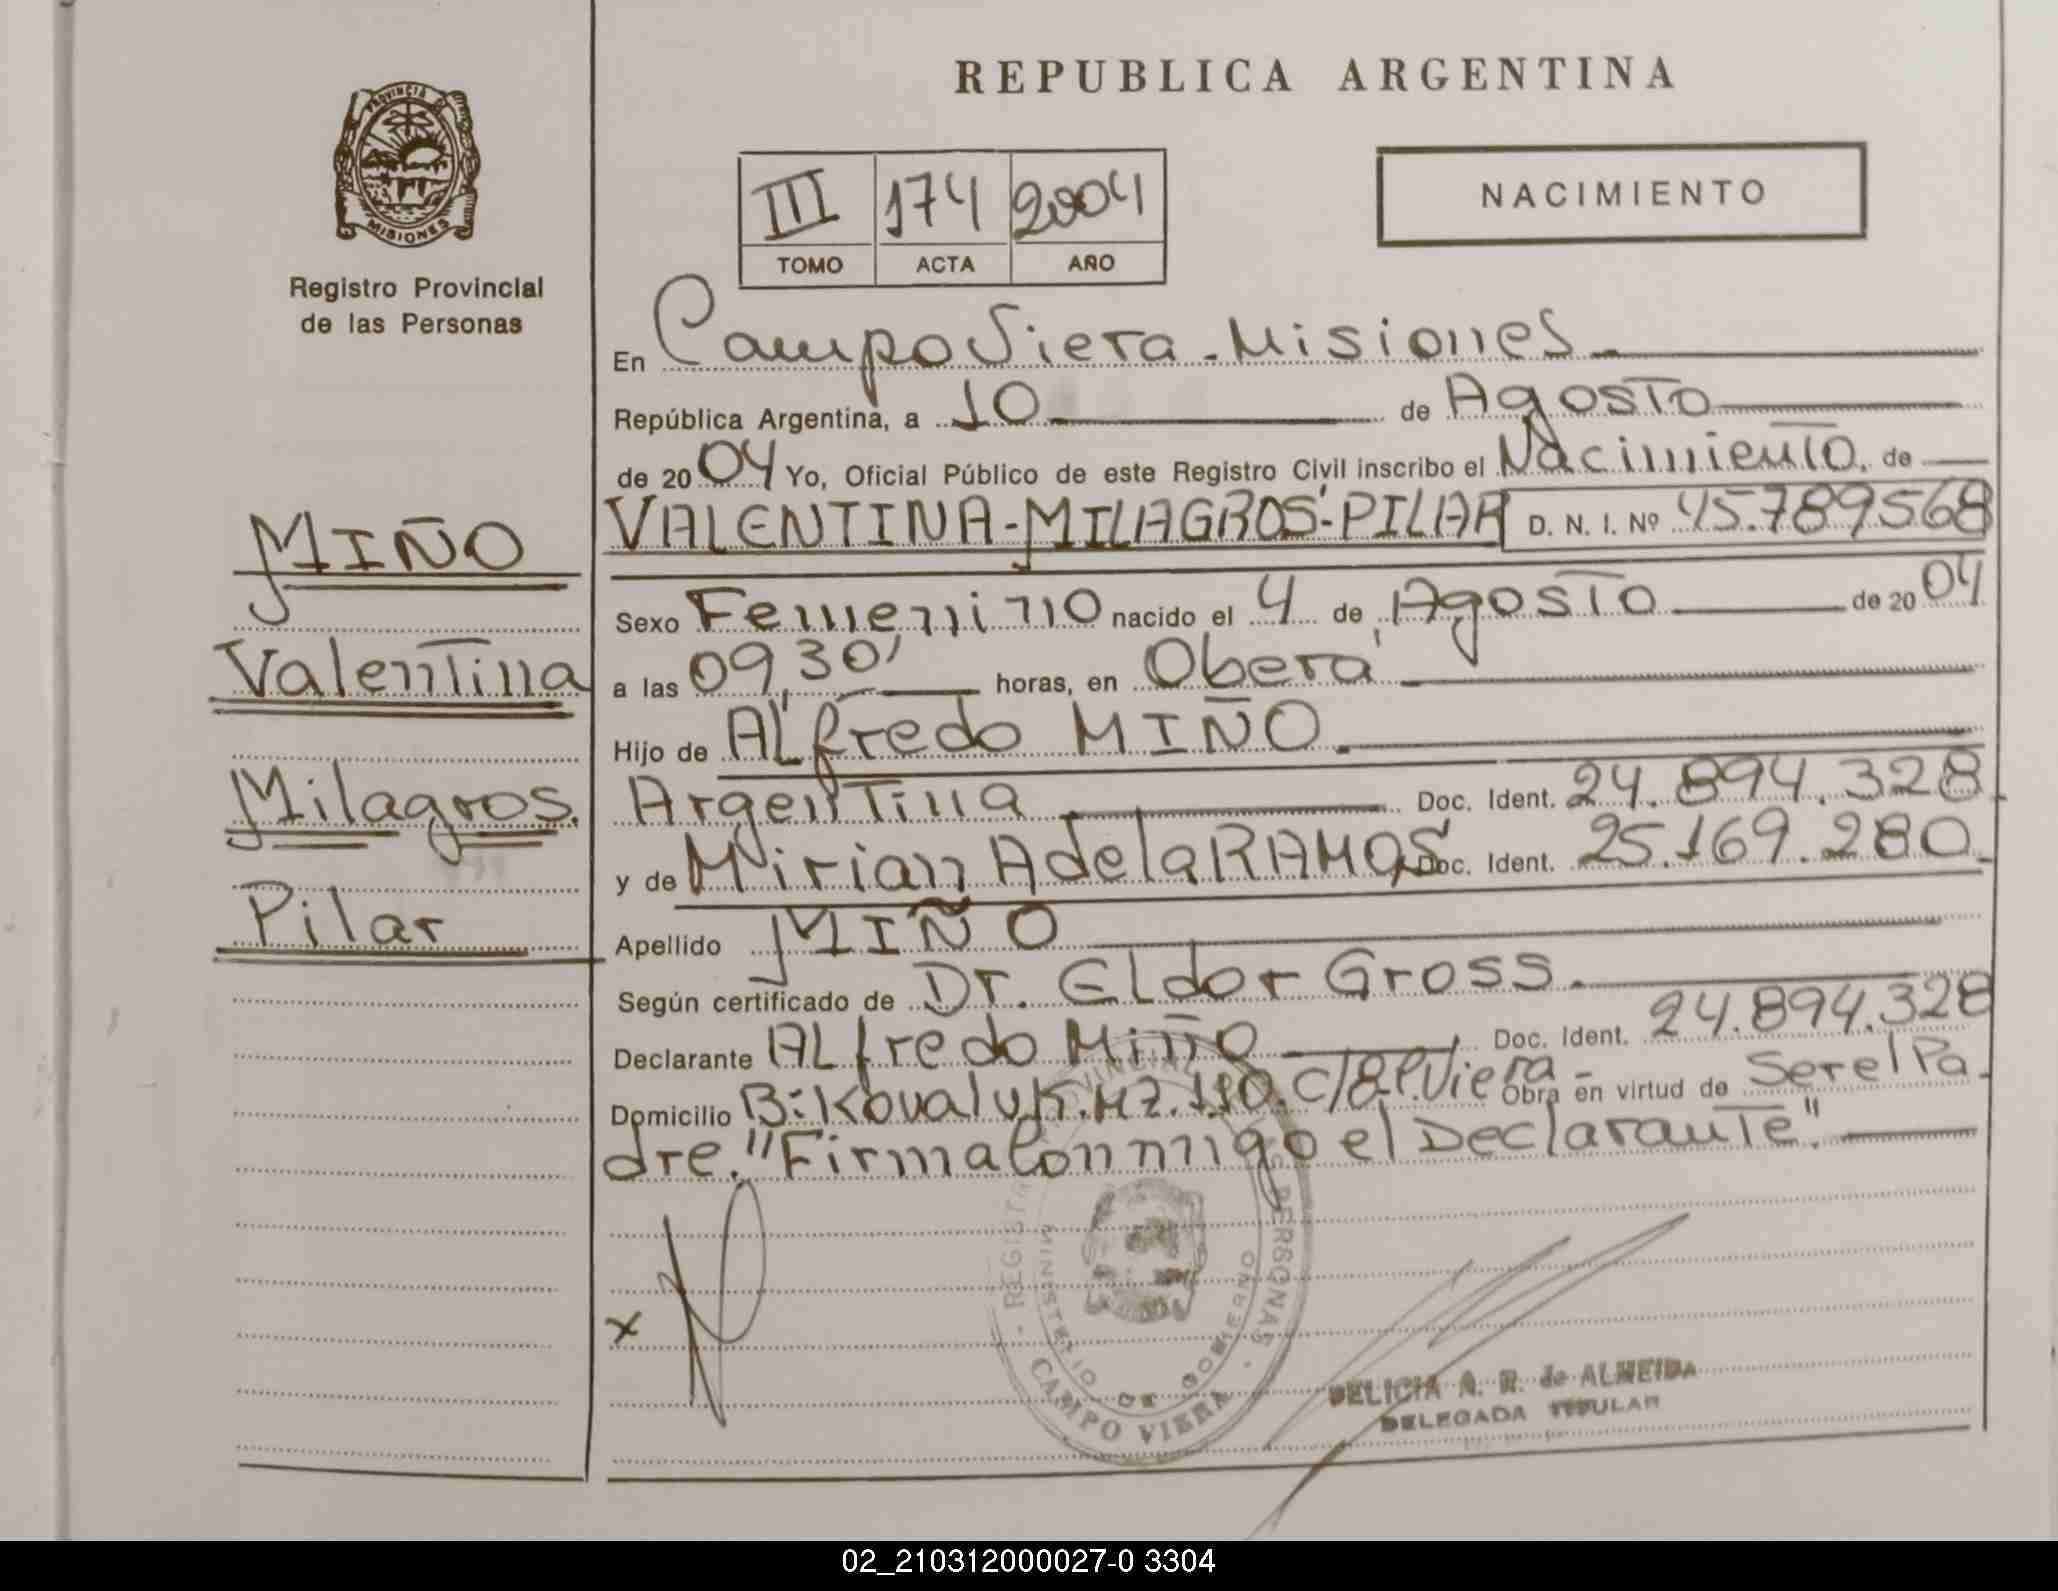 REPUBLICA ARGENTINA
PROVINCIA
MISIONES
Registro Provincial
de las Personas
III 174 2004
TOMO ACTA AÑO
NACIMIENTO
En Campo Viera - Misiones.
República Argentina, a 10 de Agosto
de 2004 Yo, Oficial Público de este Registro Civil inscribo el Nacimiento. de
VALENTINA-MILAGROS-PILAR D. N. I. Nº 45.789568
MIÑO
Valentina
Milagros.
Pilar
Sexo Femenino nacido el 4 de Agosto de 2004
a las 09,30' horas, en Oberá
Hijo de Alfredo MIÑO.
Argentina Doc. Ident. 24.894.328
y de Mirian Adela RAMOS Doc. Ident. 25.169.280.
Apellido MIÑO
Según certificado de Dr. Eldor Gross.
Declarante Alfredo Miño Doc. Ident. 24.894.328
Domicilio B: Kovaluk. Mz. 110. C/ Viera - Obra en virtud de Ser el Pa-
dre. "Firma Conmigo el Declarante."
x
REGISTRO PROVINCIAL DE LAS PERSONAS
MINISTERIO DE GOBIERNO
CAMPO VIERA
DELICIA N. R. de ALMEIDA
DELEGADA TITULAR
02_210312000027-0 3304